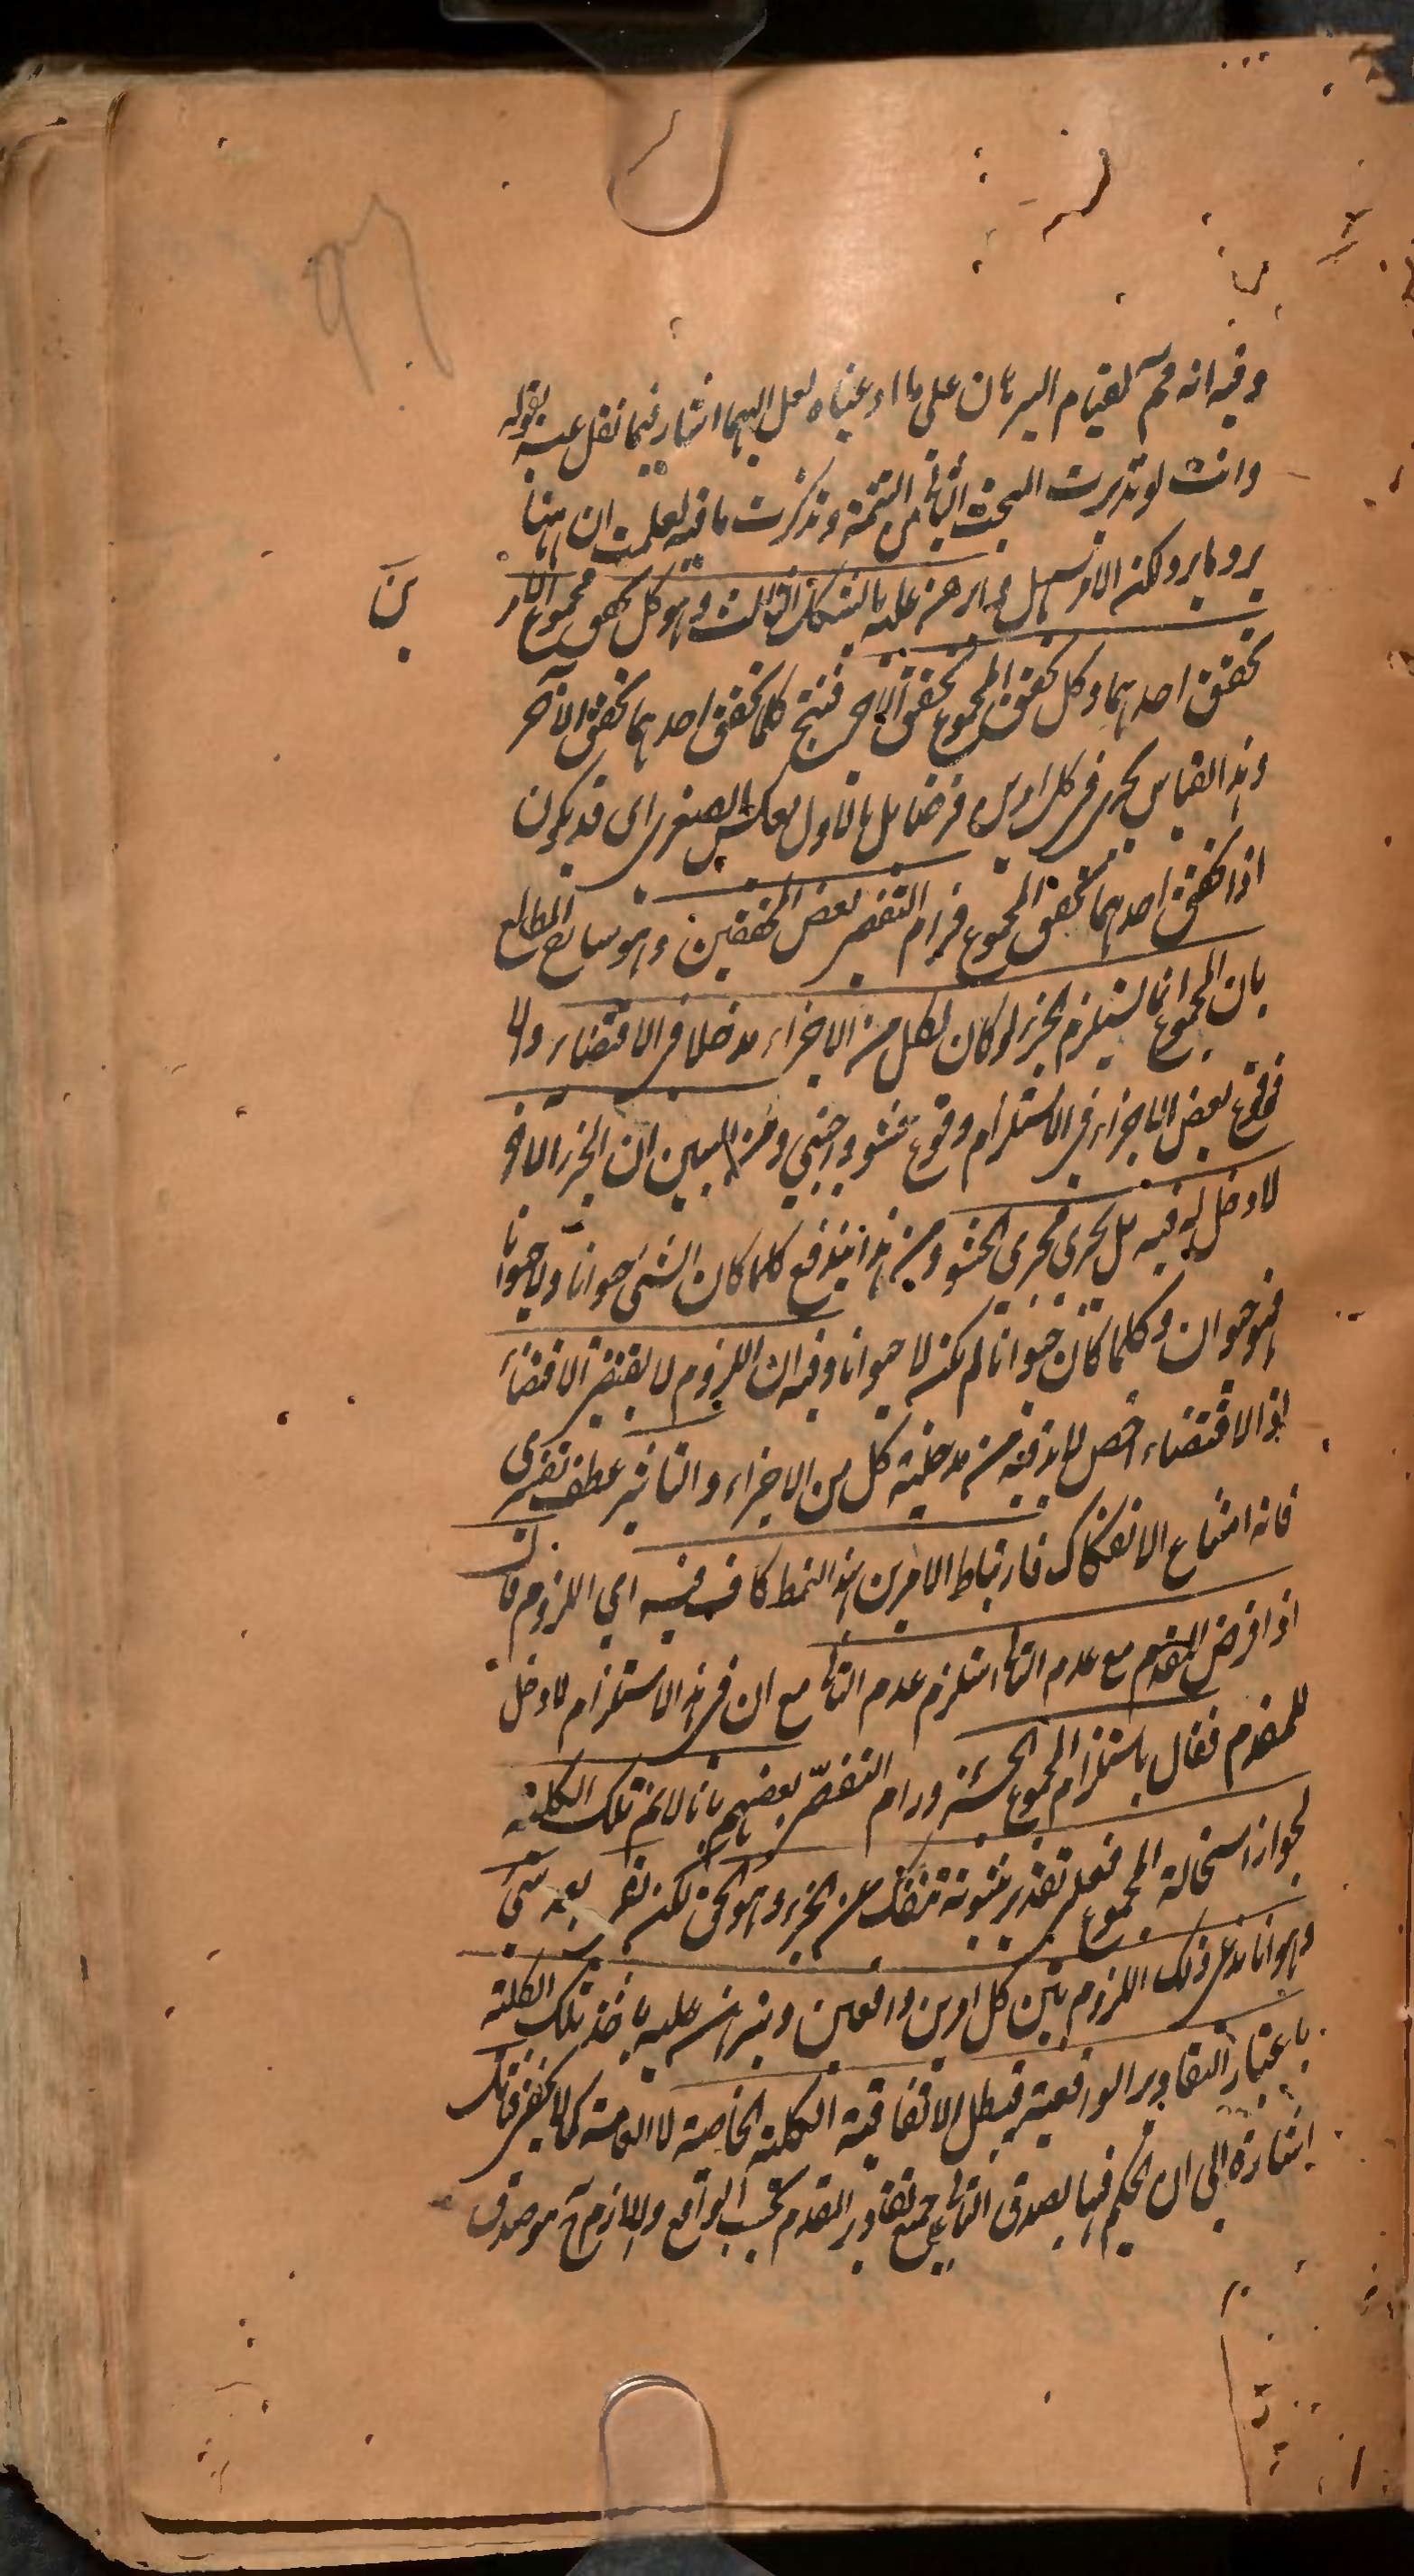 وفيه انه مم لقيام البرهان على ما ادعيناه لعل اليهما اشار فيما نقل عنه بقوله
وانت لو تدبرت المبحث الثانى من التتمة وتذكرت ما فيه لعلمت ان ههنا
يرد ما يرد لكن الامر سهل وبرهن عليه بالشكل الثالث وهو كلما تحقق مجموع الامرين
تحقق احدهما وكلما تحقق المجموع تحقق الآخر فينتج كلما تحقق احدهما تحقق الآخر
وهذا القياس يجرى فى كل امرين فرضا بل بالاول بعكس الصغرى اى قد يكون
اذا تحقق احدهما تحقق المجموع فرام التفصى بعض المحققين وهو شارح المطالع
بان المجموع انما يستلزم الجزء لو كان لكل من الاجزاء مدخلا فى الاقتضاء والا
فوقوع بعض الاجزاء فى الاستلزام وقوع حشو واجنبى ومن البين ان الجزء الآخر
لا دخل له فيه بل يجرى مجرى الحشو ومن هذا يندفع كلما كان الشئ حيوانا ولا حيوانا
فهو حيوان وكلما كان حيوانا لم يكن لا حيوانا وفيه ان اللزوم لا يقتضى الاقتضاء
اذ الاقتضاء اخص لا بد فيه من مدخلية كل من الاجزاء والتاثير عطف تفسيرى
فانه امتناع الانفكاك فارتباط الامرين بهذا النمط كاف فيه اى اللزوم فان
اذا فرض المقدم مع عدم التالى استلزم عدم التالى مع ان فى هذا الاستلزام لا دخل
للمقدم فقال باستلزام المجموع الجزء ورام التفصى بعضهم بانا لا نم تلك الكلية
لجواز استحالة المجموع فعلى تقدير ثبوته تنفك عن الجزء وهو الحق لكن بقى بعد شئ
وهو انا ندعى ذلك اللزوم بين كل امرين واقعين ونبرهن عليه باخذ تلك الكلية
باعتبار التقادير الواقعية فيبطل الاتفاقية الكلية الخاصة لا العامة كما لا يخفى فانك
اشارة الى ان الحكم فيها بصدق التالى على جميع تقادير المقدم بحسب الواقع واللازم هو صدق